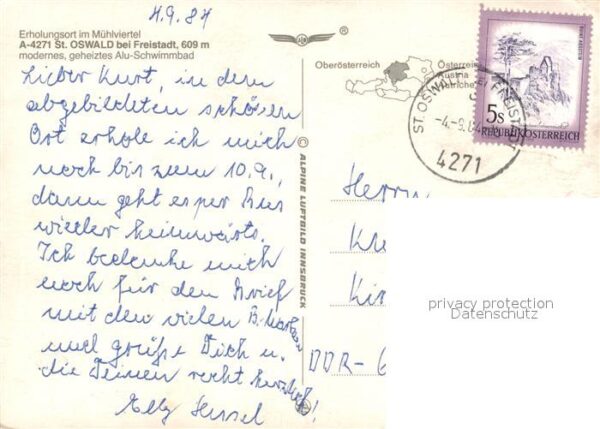 4.9.84
Erholungsort im Mühlviertel
A-4271 St. OSWALD bei Freistadt, 609 m
modernes, geheiztes Alu-Schwimmbad
Lieber Kurt, in dem
abgebildeten schönen
Ort erhole ich mich
noch bis zum 10.9.,
dann geht es per Bus
wieder heimwärts.
Ich bedanke mich
noch für den Brief
mit den vielen B.marken
und grüße Dich u.
die Deinen recht herzlich!
Elly
®
Oberösterreich
Österreich
Austria
Autriche
ST. OSWALD BEI FREISTADT
-4.-9.84
4271
5s
REPUBLIK ÖSTERREICH
© ALPINE LUFTBILD INNSBRUCK
Herrn
DDR-
privacy protection
Datenschutz